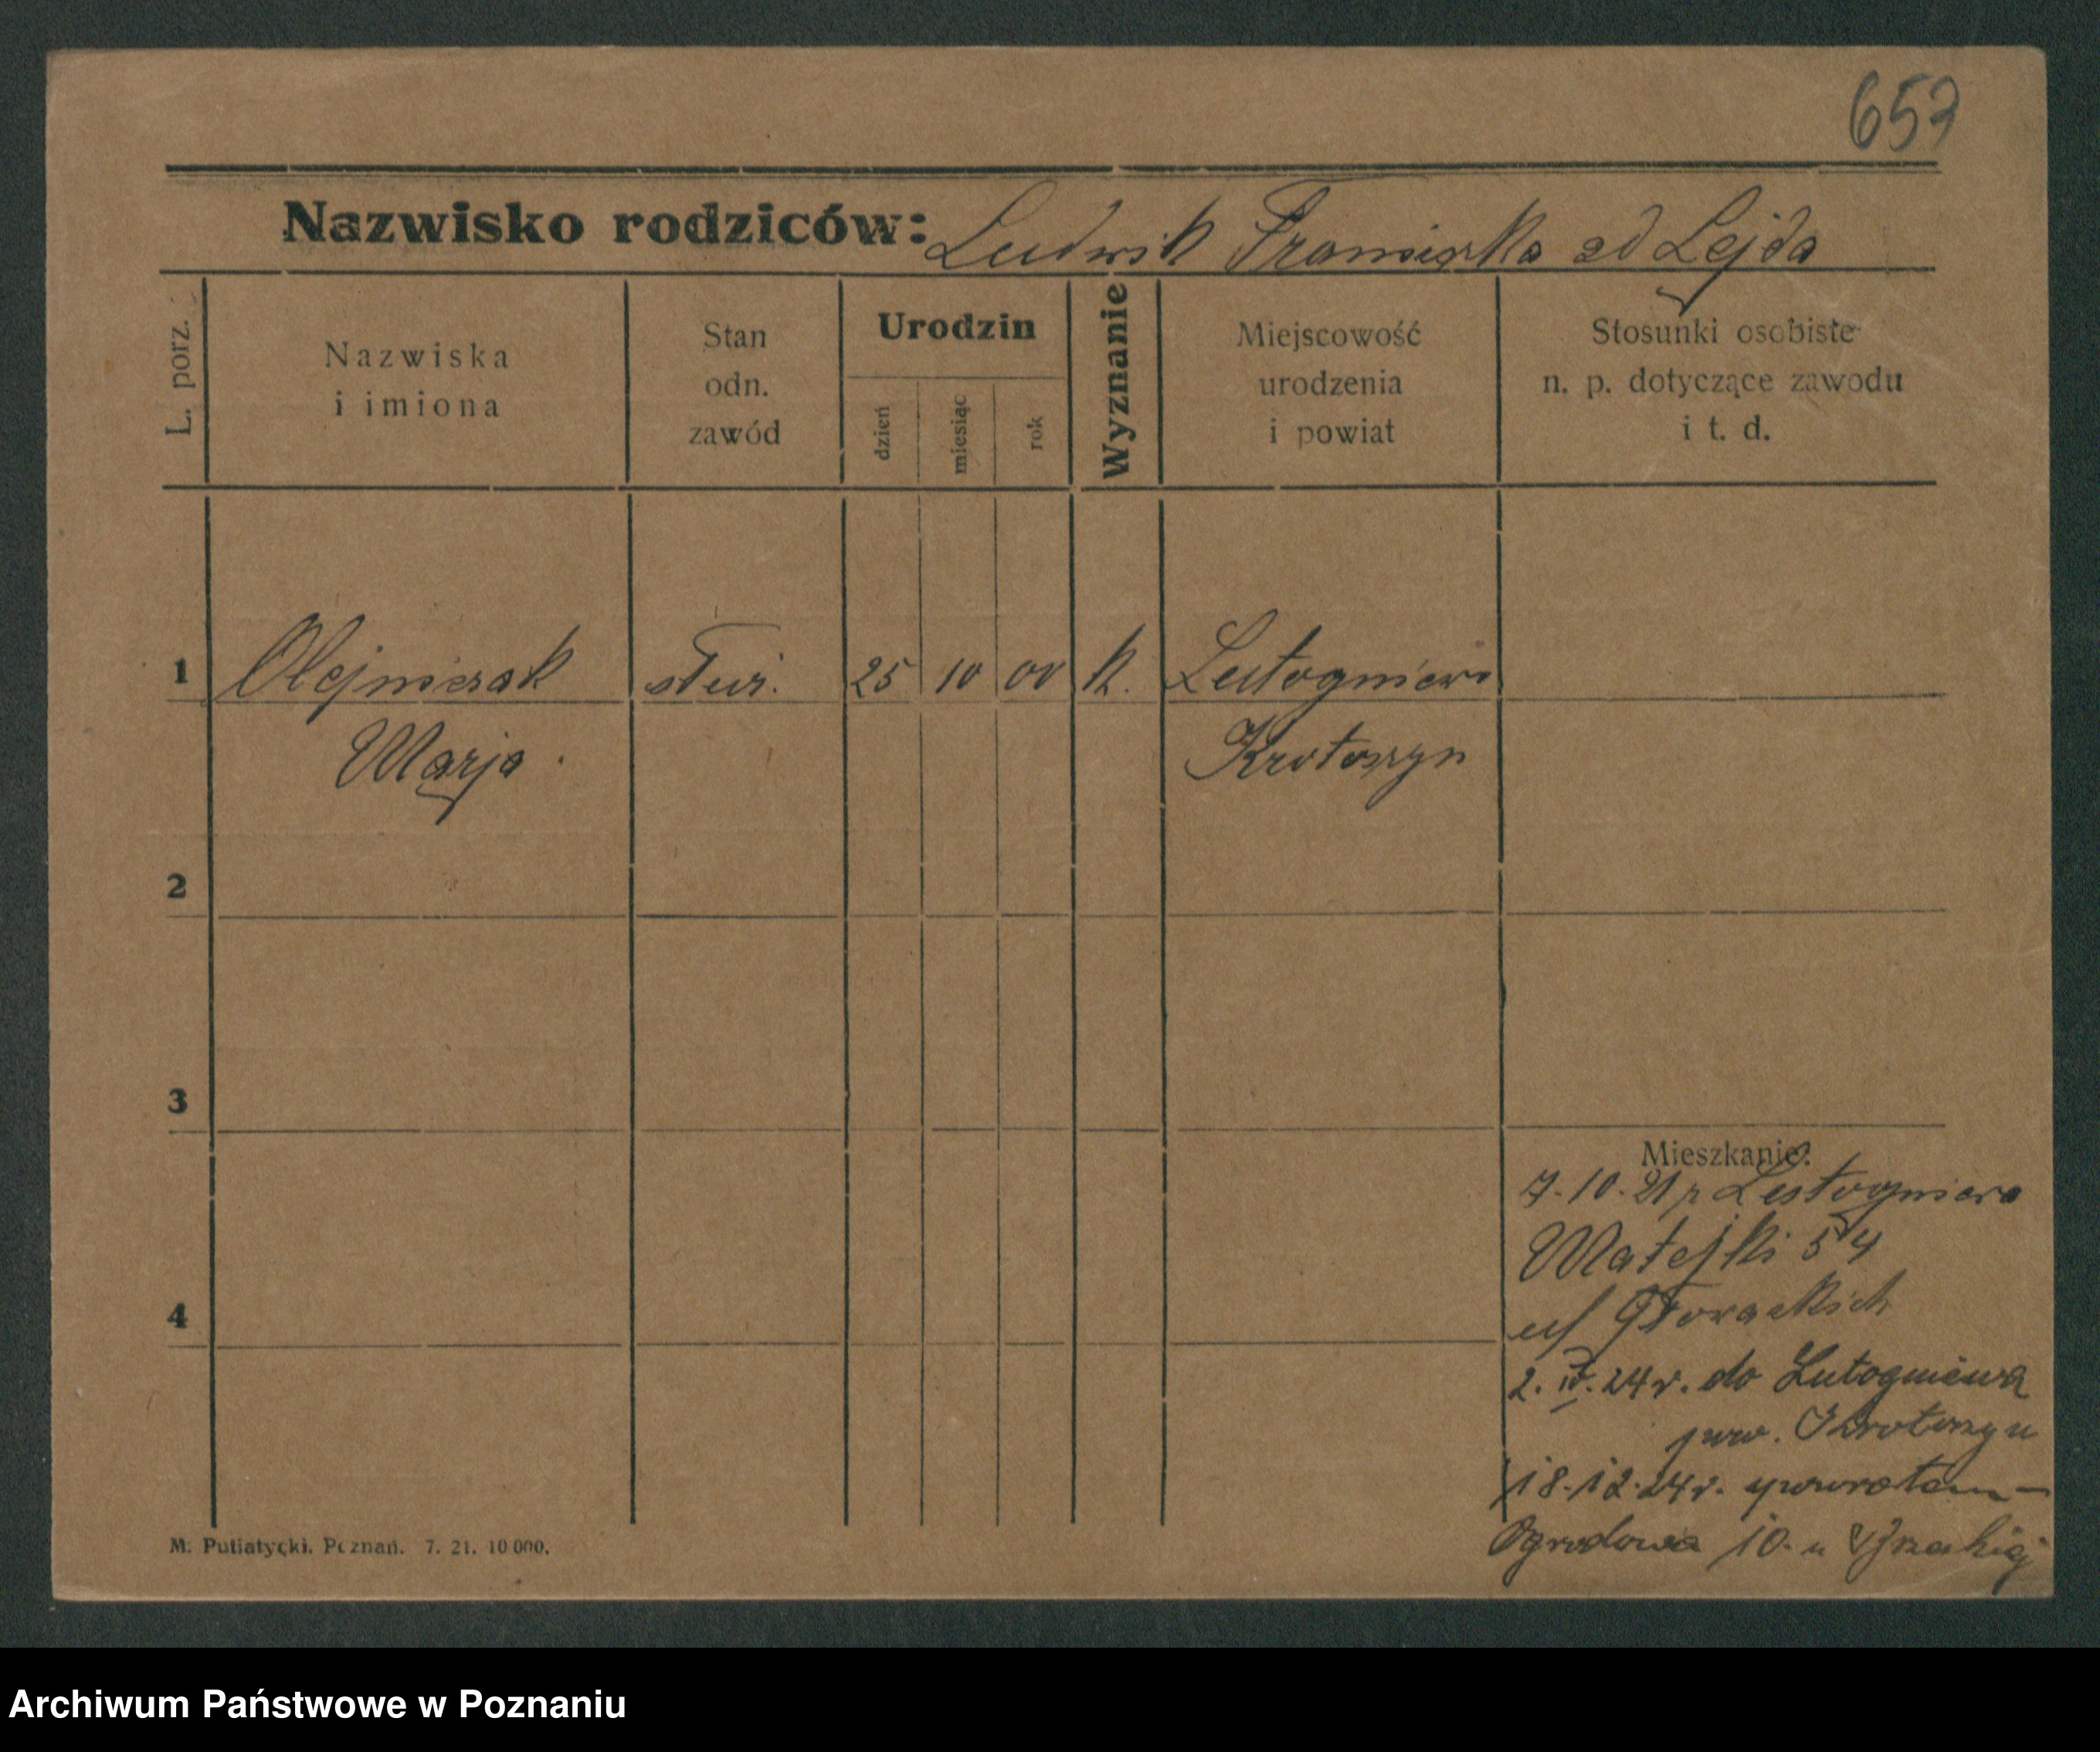 657
Nazwisko rodziców: Ludwik Franciszka zd Lejda
L. porz.
Nazwiska
i imiona
Stan
odn.
zawód
Urodzin
dzień
miesiąc
rok
Wyznanie
Miejscowość
urodzenia
i powiat
Stosunki osobiste
n. p. dotyczące zawodu
i t. d.
1 Olejniczak służ. 25 10 00 k. Lutogniewo
Marja Krotoszyn
2
3
Mieszkanie:
7.10.21 z Lutogniewa
Matejki 54
4
2. IV. 24 r. do Lutogniewa
pow. Krotoszyn
18.12.24 r. z powrotem -
Ogrodowa 10. u
M. Putiatycki. Poznań. 7. 21. 10 000.
Archiwum Państwowe w Poznaniu